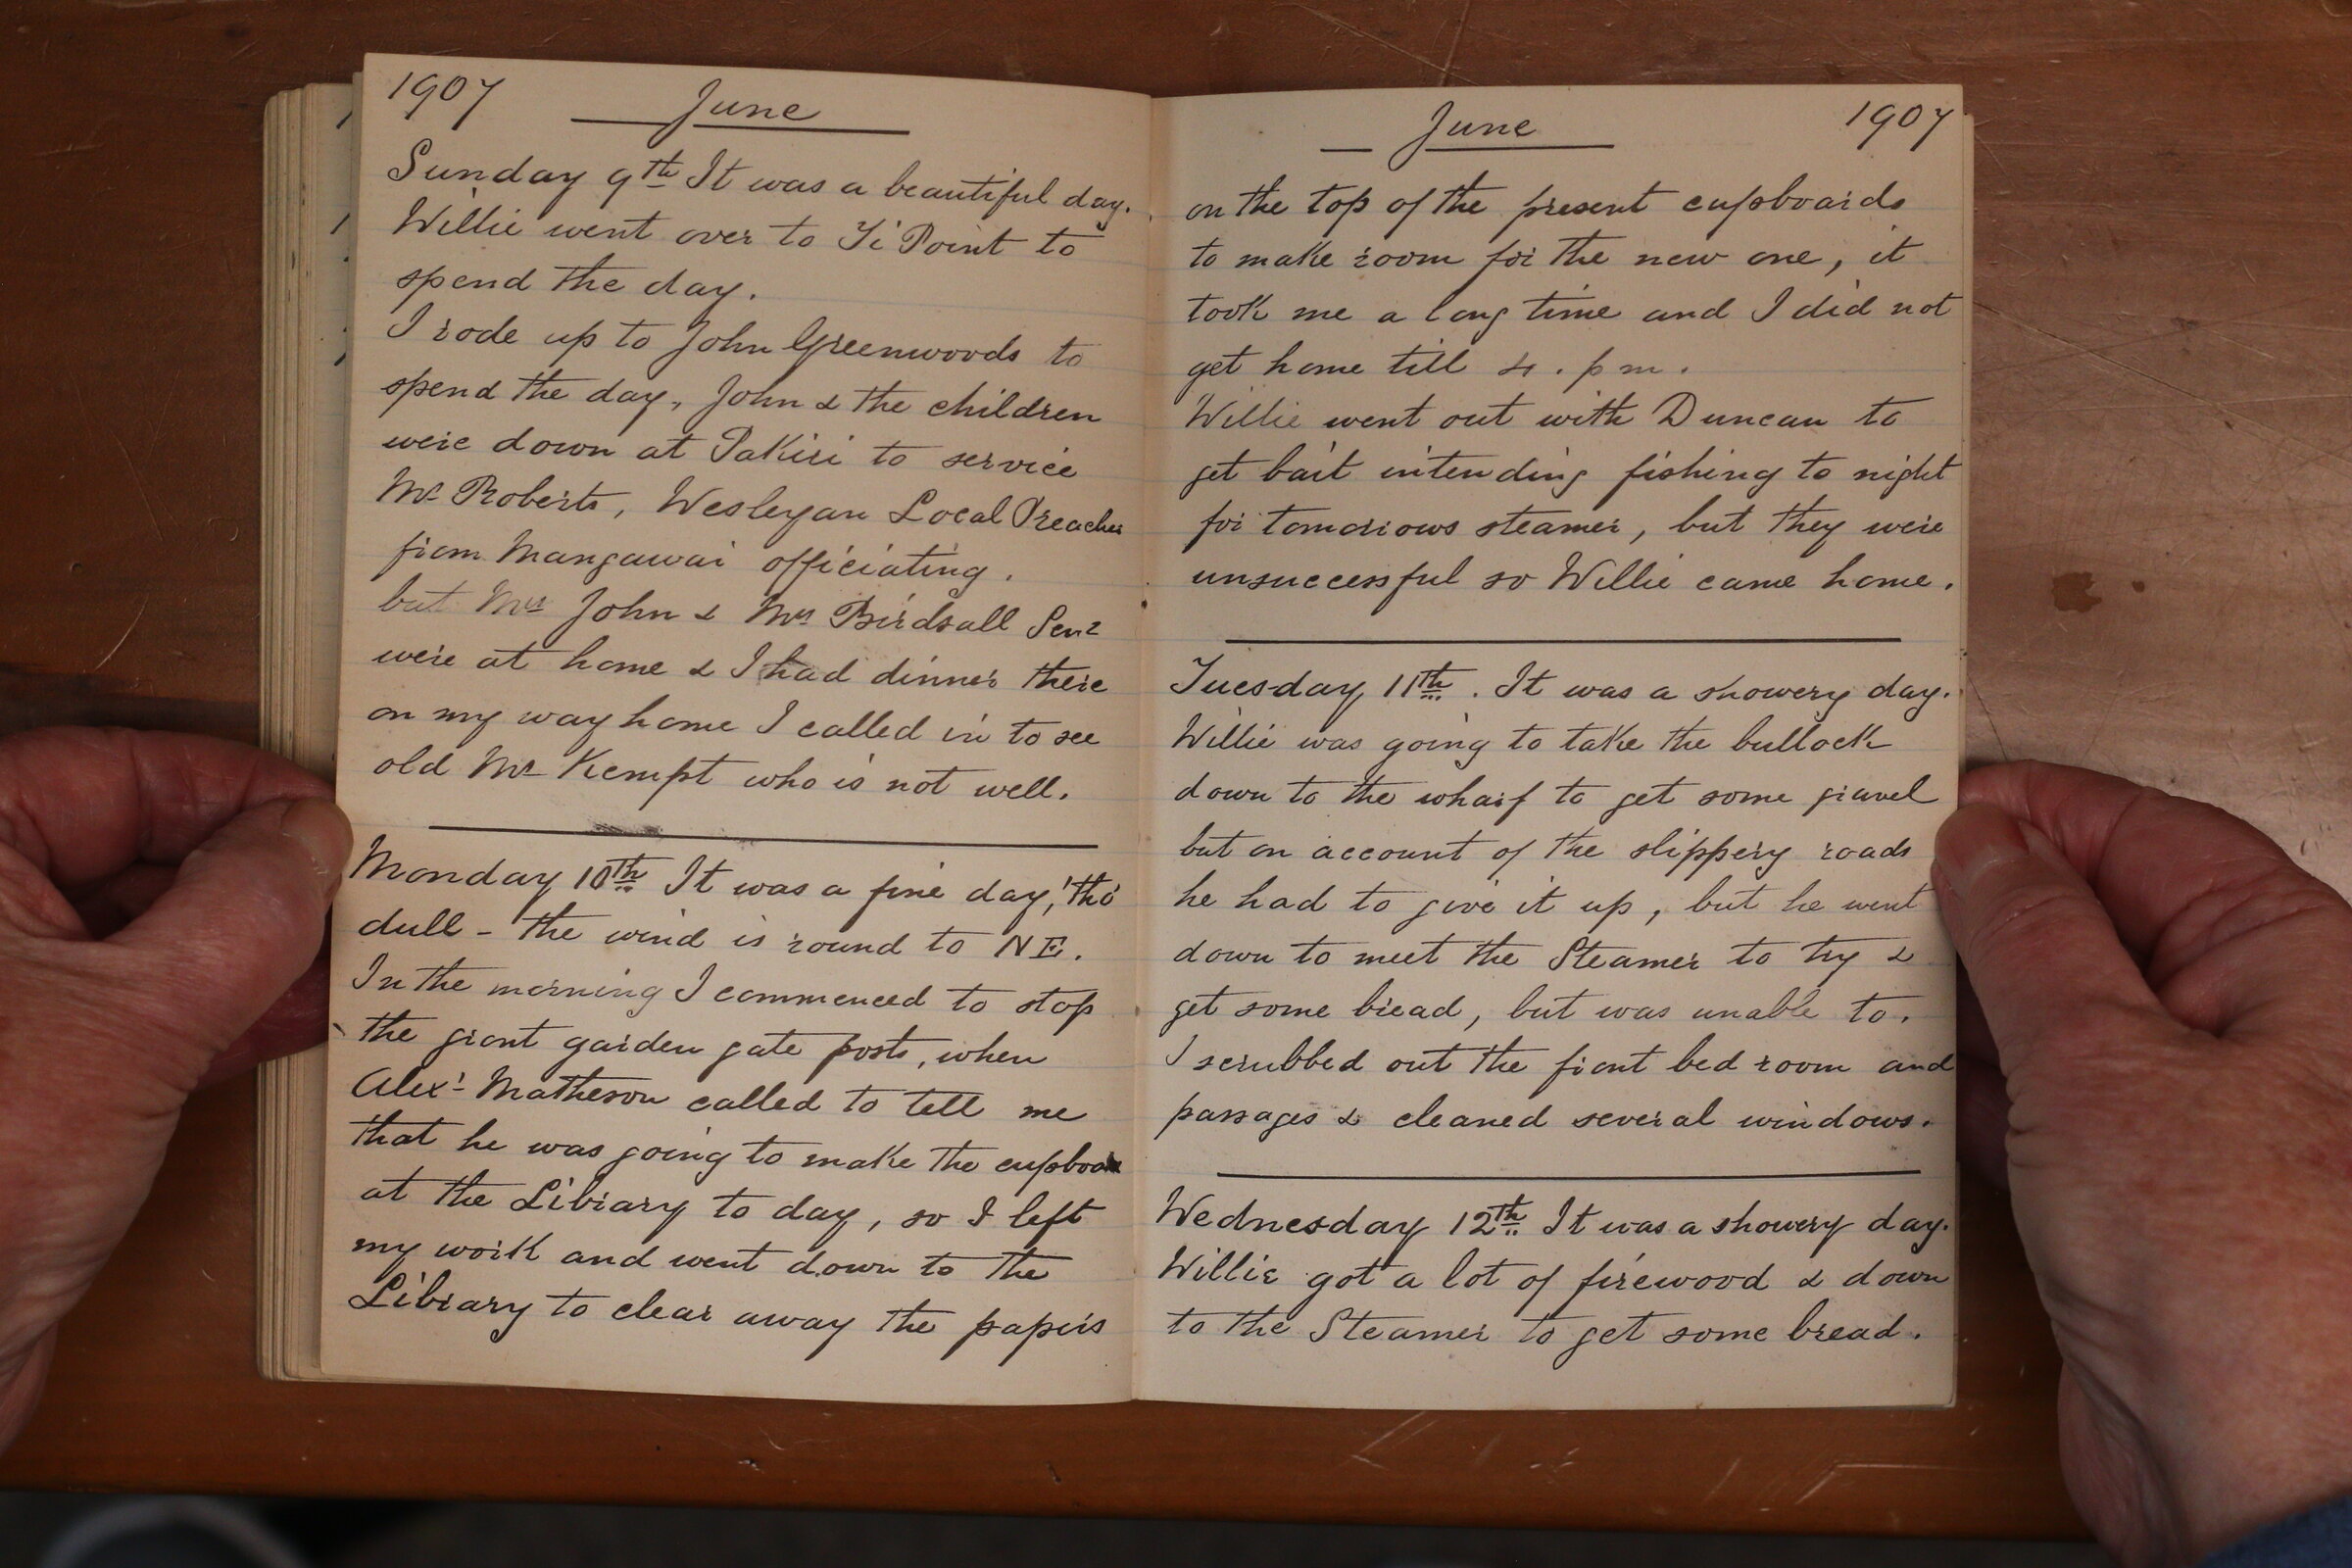 1907
June
Sunday 9th It was a beautiful day.
Willie went over to Ti Point to
spend the day.
I rode up to John Greenwoods to
spend the day, John & the children
were down at Pakiri to service
Mr Roberts, Wesleyan Local Preacher
from Mangawai officiating.
but Mrs John & Mrs Birdsall Senr
were at home & I had dinner there
on my way home I called in to see
old Mr Kempt who is not well.
Monday 10th It was a fine day, tho'
dull - the wind is round to NE.
In the morning I commenced to stop
the front garden gate posts, when
Alexr Matheson called to tell me
that he was going to make the
at the Library to day, so I left
my work and went down to the
Library to clear away the papers
June
1907
on the top of the present cupboards
to make room for the new one, it
took me a long time and I did not
get home till 4. pm.
Willie went out with Duncan to
get bait intending fishing to night
for tomorrows steamer, but they were
unsuccessful so Willie came home.
Tuesday 11th. It was a showery day.
Willie was going to take the bullock
down to the wharf to get some gravel
but on account of the slippery roads
he had to give it up, but he went
down to meet the Steamer to try &
get some bread, but was unable to.
I scrubbed out the front bed room and
passages & cleaned several windows.
Wednesday 12th It was a showery day.
Willie got a lot of firewood & down
to the Steamer to get some bread.